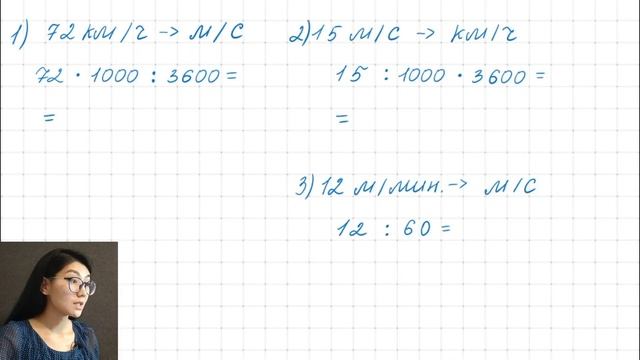 1) 72 км/ч -> м/с
72 · 1000 : 3600 =
=
2) 15 м/с -> км/ч
15 : 1000 · 3600 =
=
3) 12 м/мин. -> м/с
12 : 60 =